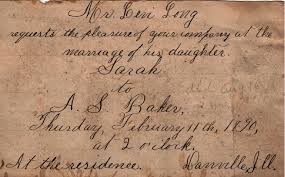 Mr. Len Long
requests the pleasure of your company at the
marriage of his daughter.
Sarah
to
A. S. Baker,
Thursday, February 11th, 1890,
at 2 o'clock.
At the residence. Danville, Ill.